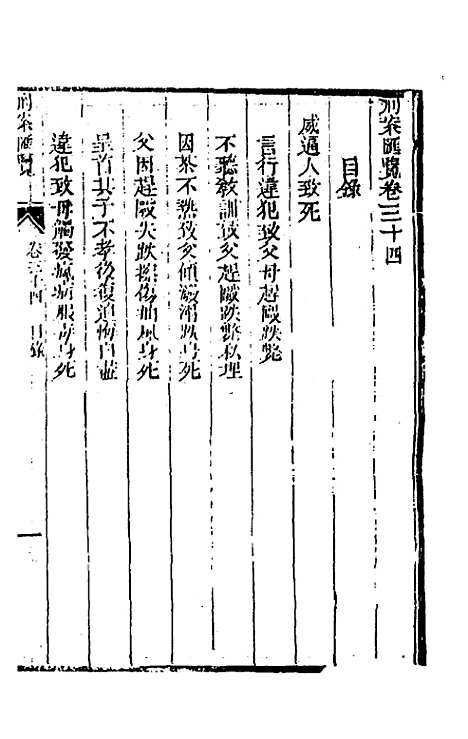 刑案匯覽卷三十四
目錄
威逼人致死
言行違犯致父母趕毆跌斃
不聽教訓致父趕毆跌斃私埋
因茶不熱致父傾潑滑跌身死
父因趕毆失跌擦傷抽風身死
呈首其子不孝後復追悔自盡
違犯致母觸發瘋病服毒身死
刑案匯覽 卷三十四 目錄 一